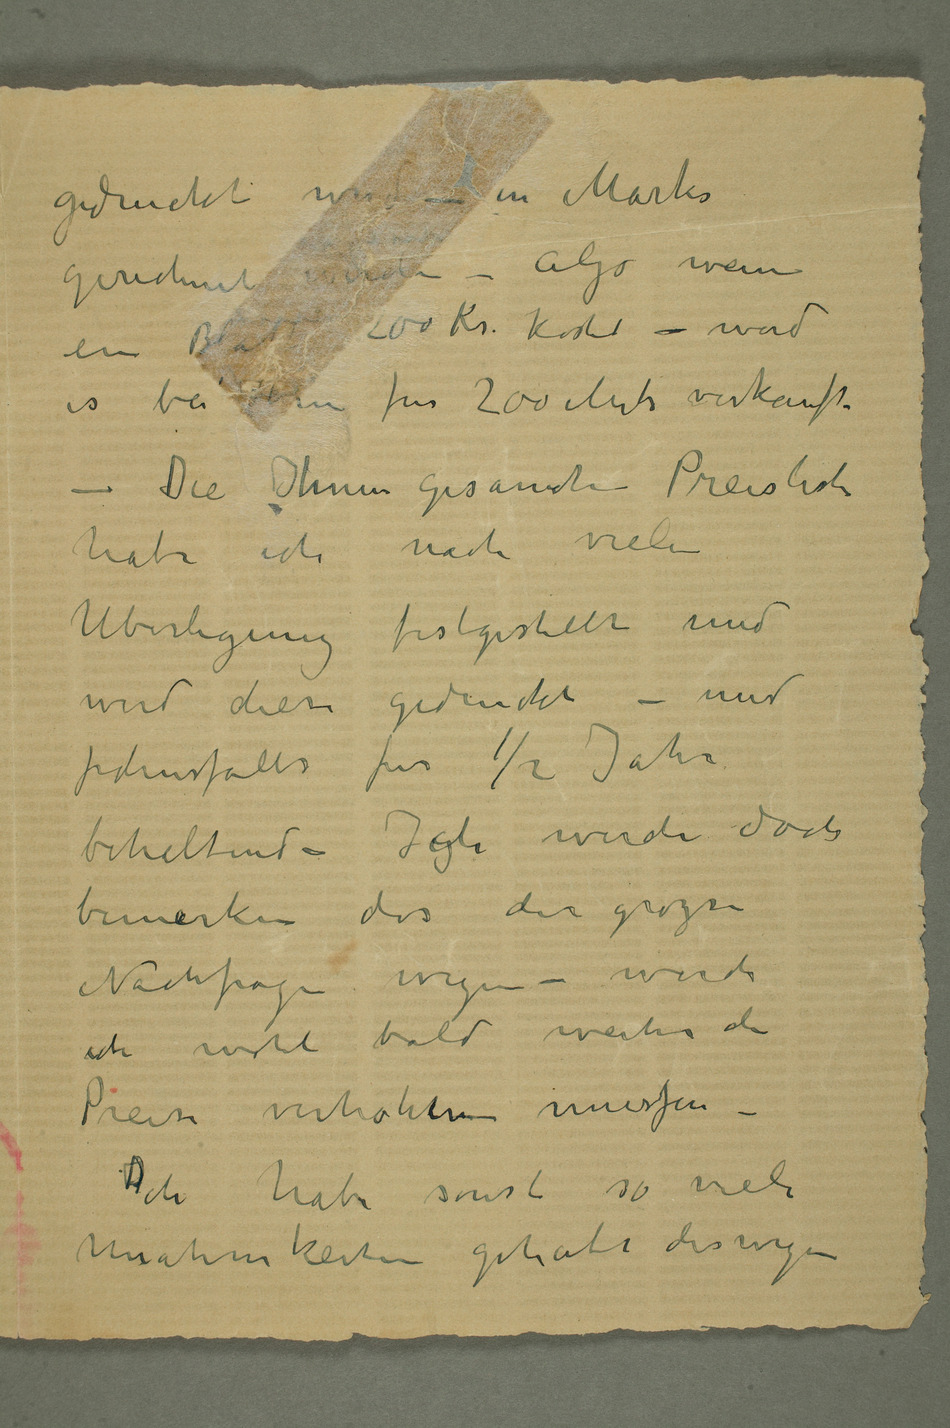 gedruckt wird – in Marks
gerechnet werden – Also wenn
ein Blatt 200 Kr. kostet – word
es bei Ihnen fur 200 Mk verkauft
– Die Ihnen gesandte Preisliste
habe ich nach vielen
Uberlegung festgestellt und
wird diese gedruckt – und
jedensfalls fur 1/2 Jahr
behaltend – Ich werde doch
bemerken das der grozse
Nachfrage wegen – werde
ich wohl bald weiter die
Preise verhohhen muessen –
Ich habe sonst so viele
gehabt deswegen